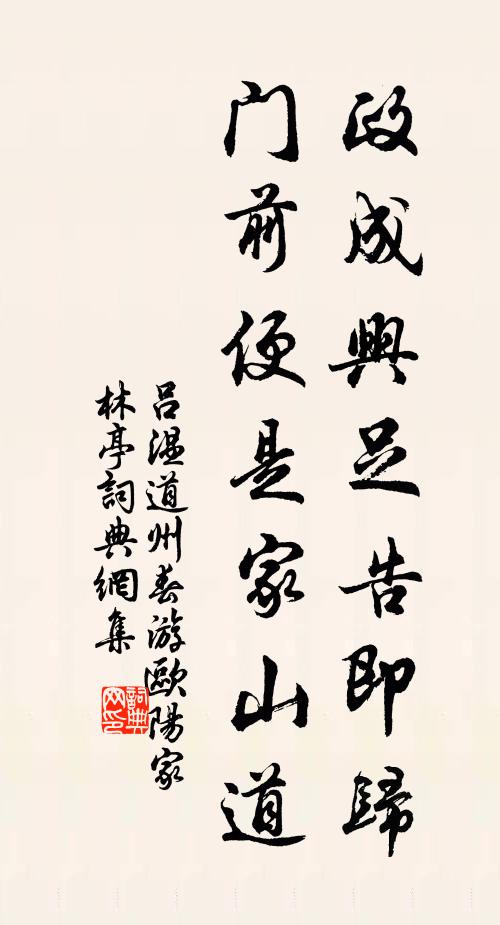 政成興足告即歸
门前便是家山道
呂温道州春游歐陽家
林亭詞典網集
詞典
网印